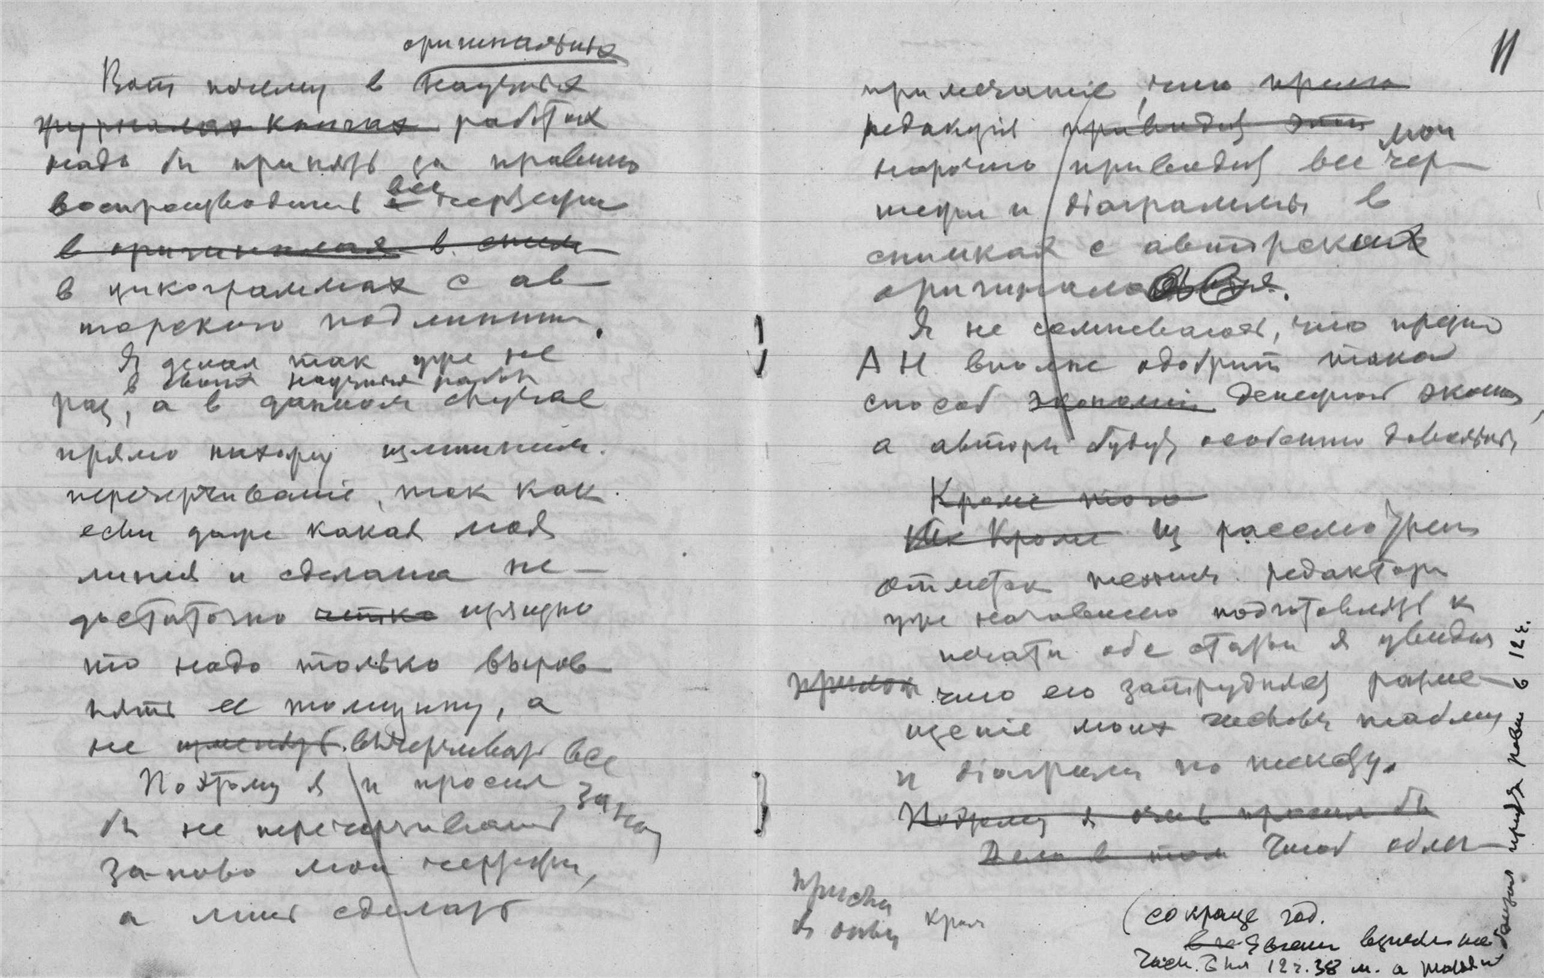 оригинальных
Вот почему в научных
журналах книгах работах
надо бы принять за правило
воспроизводить все чертежи
в оригиналах в сним
в цинкограммах с ав
торского подлинника.
Я делал так уже не
в своих научных работ
раз, а в данном случае
прямо нахожу излишним
перечерчиваніе, так как
если даже какая моя
линия и сделана не-
достаточно четко изящно
то надо только выров
нять ее толщину, а
не изменять вычерчивать все
Поэтому я и просил заново
бы не перечерчивать
заново мои чертежи,
а лишь сделать
11
примечаніе, что прямо
редакція приводит эти мои
нарочно приводит все чер-
тежи и діаграммы в
снимках с авторских
оригиналов.
Я не сомневаюсь, что през
АН вполне одобрит такой
способ экономіи денежной эконом
а авторы будут особенно довольны
Кроме того
Кроме Из рассмотрен
отметок технич. редактора
уже начавшего подготовлять к
печати обе статьи я увидел
что его затрудняет разме-
щеніе моих числовых таблиц
и діаграмм по тексту.
Поэтому я очень просил бы
Дело в том Чтоб облег
(сокраще год.
12 ч. 38 м. а
12 ч.